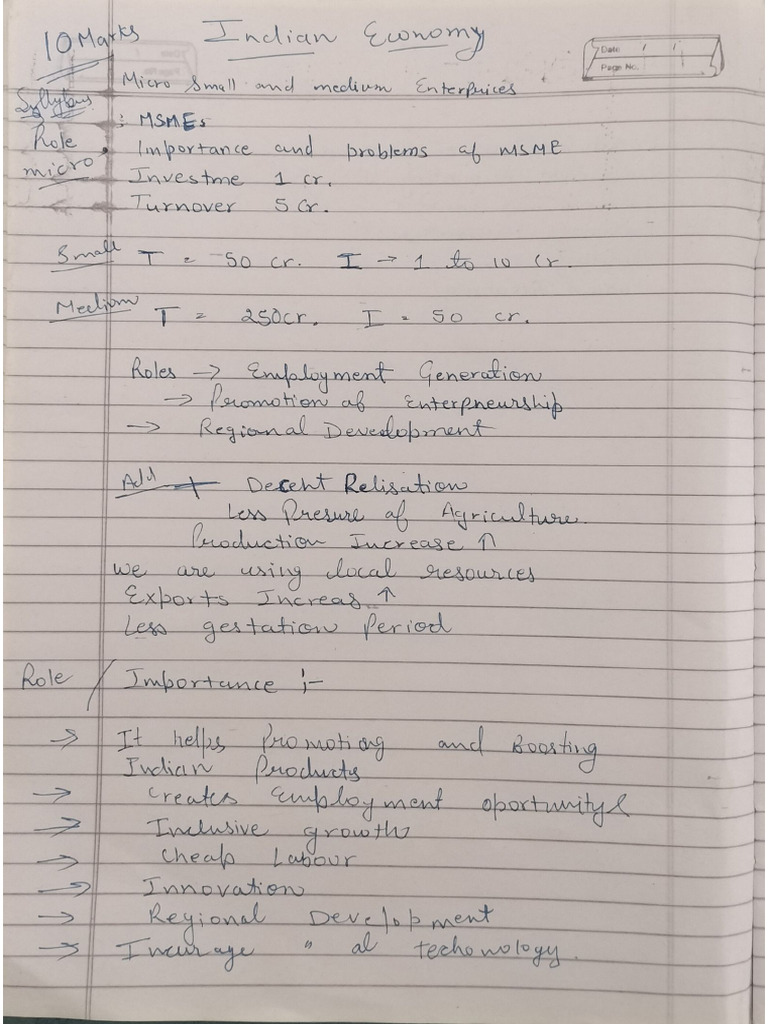 10 Marks Indian Economy
Date
Page No.
Micro Small and medium Enterprices
Syllybus : MSMEs
Role • Importance and problems of MSME
micro Investme 1 cr.
Turnover 5 Cr.
Small T = 50 cr. I → 1 to 10 Cr.
Medium T = 250cr. I = 50 cr.
Roles → Employment Generation
→ Promotion of Enterpneurship
→ Regional Development
Add + Decent Relisation
Less Presure of Agriculture.
Production Increase ↑
we are using local resources
Exports Increas ↑
Less gestation Period
Role / Importance :-
→ It helps Promotiong and Boosting
Indian Products
→ Creates Employment oportunity&
→ Inclusive growth
→ Cheap Labour
→ Innovation
→ Regional Development
→ Incurage " al techonology.